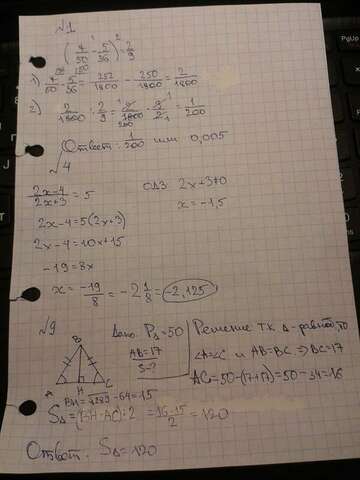 √1
(7/50 - 5/36) : 2/9
1) 7/50 - 5/36 = 252/1800 - 250/1800 = 2/1800
2) 2/1800 : 2/9 = 2/1800 · 9/2 = 1/200
Ответ: 1/200 или 0,005
√4
(2x-4)/(2x+3) = 5 ОДЗ 2x+3≠0
x=-1,5
2x-4=5(2x+3)
2x-4=10x+15
-19=8x
x = -19/8 = -2 1/8 = -2,125
√9
Дано: P△=50
AB=17
S-?
B
A H C
Решение тк △-равноб, то
∠A=∠C и AB=BC ⇒ BC=17
AC=50-(17+17)=50-34=16
BH=√289-64=15
S△=(BH·AC):2 = 16·15/2 = 120
Ответ: S△=120